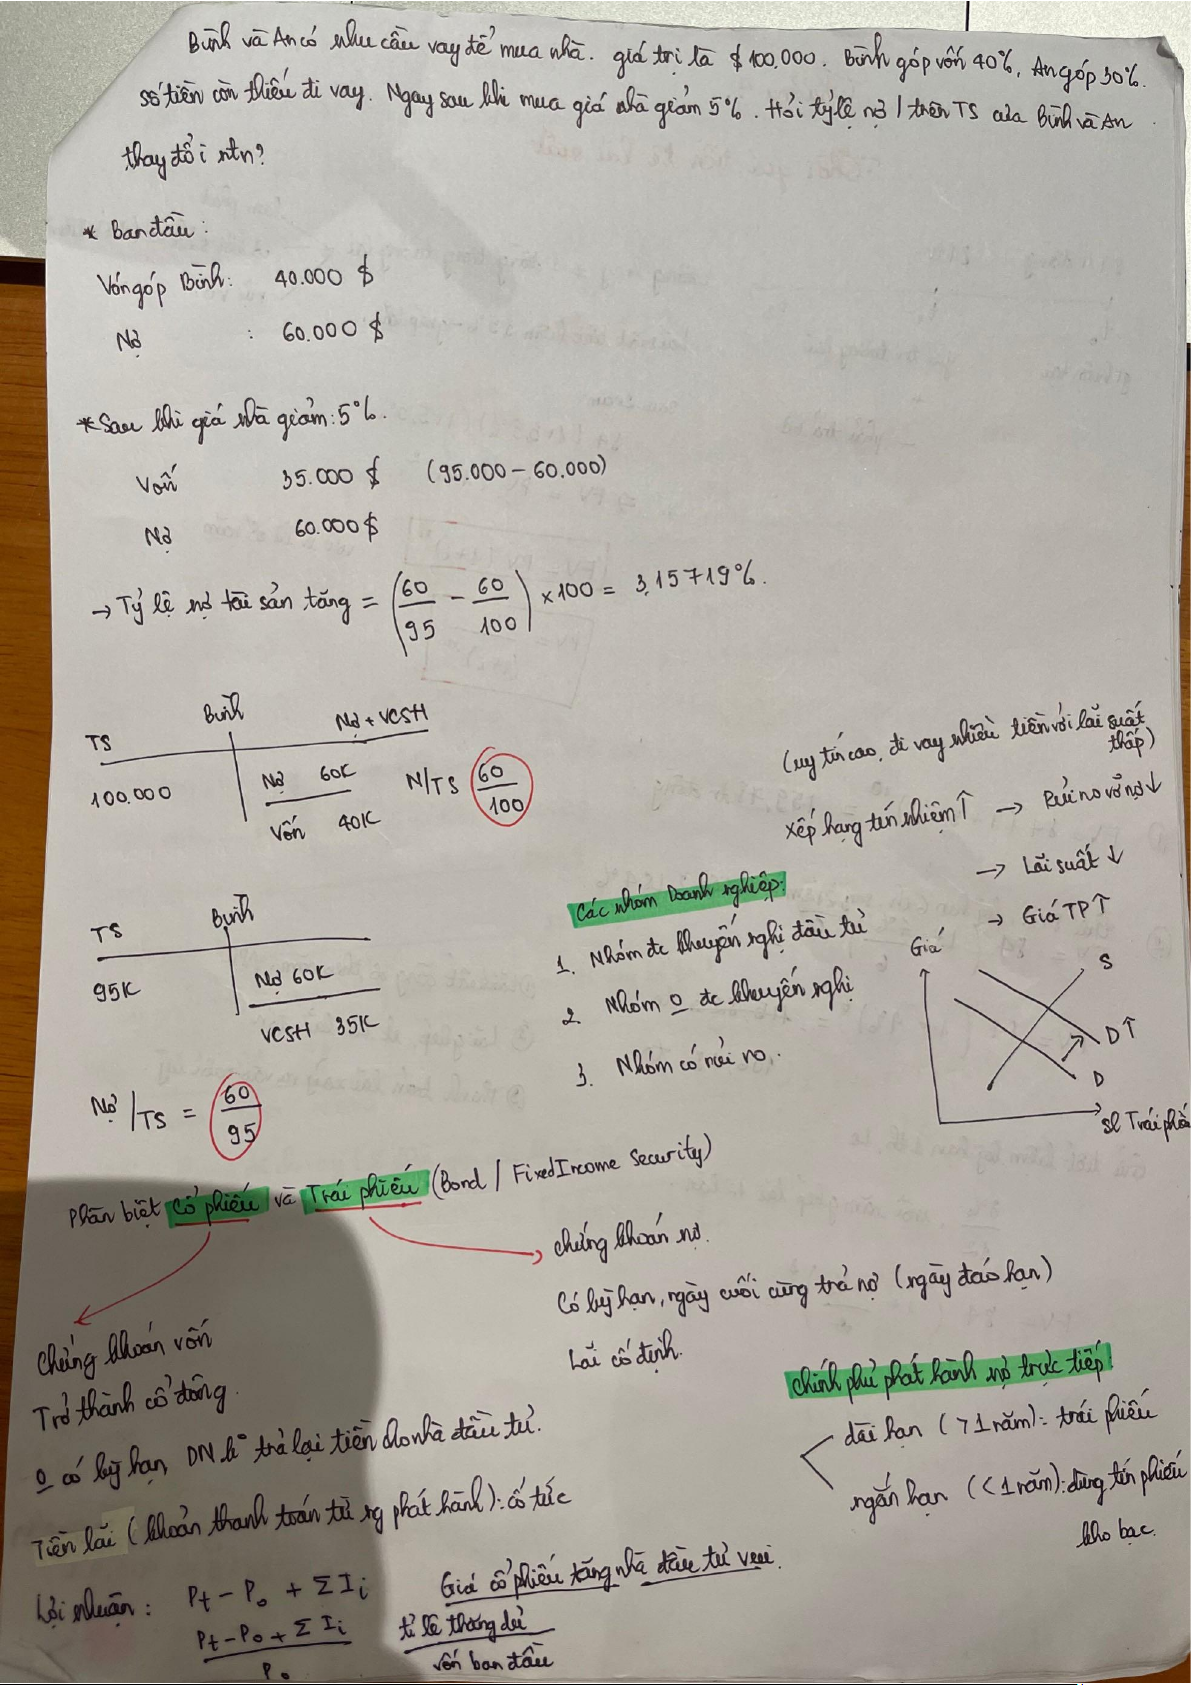 Bình và An có nhu cầu vay để mua nhà. giá trị là $ 100.000. Bình góp vốn 40%, An góp 30%.
số tiền còn thiếu đi vay. Ngay sau khi mua giá nhà giảm 5%. Hỏi tỷ lệ nợ / trên TS của Bình và An
thay đổi ntn?
* Ban đầu:
Vốn góp Bình: 40.000 $
Nợ : 60.000 $
* Sau khi giá nhà giảm: 5%.
Vốn 35.000 $ (95.000 - 60.000)
Nợ 60.000 $
→ Tỷ lệ nợ tài sản tăng = (60/95 - 60/100) × 100 = 3,15719%.
TS Bình Nợ + VCSH
100.000 Nợ 60K N/TS 60/100
Vốn 40K
(uy tín cao, đi vay nhiều tiền với lãi suất
thấp)
xếp hạng tín nhiệm ↑ → Rủi no vỡ nợ ↓
→ Lãi suất ↓
→ Giá TP ↑
TS Bình
95K Nợ 60K
VCSH 35K
Nợ/TS = 60/95
Các nhóm Doanh nghiệp:
1. Nhóm đc khuyến nghị đầu tư
2. Nhóm 0 đc khuyến nghị
3. Nhóm có rủi no.
Giá
S
D↑
D
Sl Trái phiế
Phân biệt Cổ phiếu và Trái phiếu (Bond / Fixed Income Security)
chứng khoán nợ.
Có kỳ hạn, ngày cuối cùng trả nợ (ngày đáo hạn)
Lãi cố định.
Chứng khoán vốn
Trở thành cổ đông.
0 có kỳ hạn, DN k° trả lại tiền cho nhà đầu tư.
Tiền lãi (khoản thanh toán từ ng phát hành): cổ tức
Lợi nhuận: Pt - P0 + Σ Ii
Pt - P0 + Σ Ii / P0
Giá cổ phiếu tăng nhà đầu tư vui.
tỉ lệ thặng dư / vốn ban đầu
chính phủ phát hành nợ trực tiếp:
dài hạn (>1 năm): trái phiếu
ngắn hạn (<1 năm): dùng tín phiếu
kho bạc.